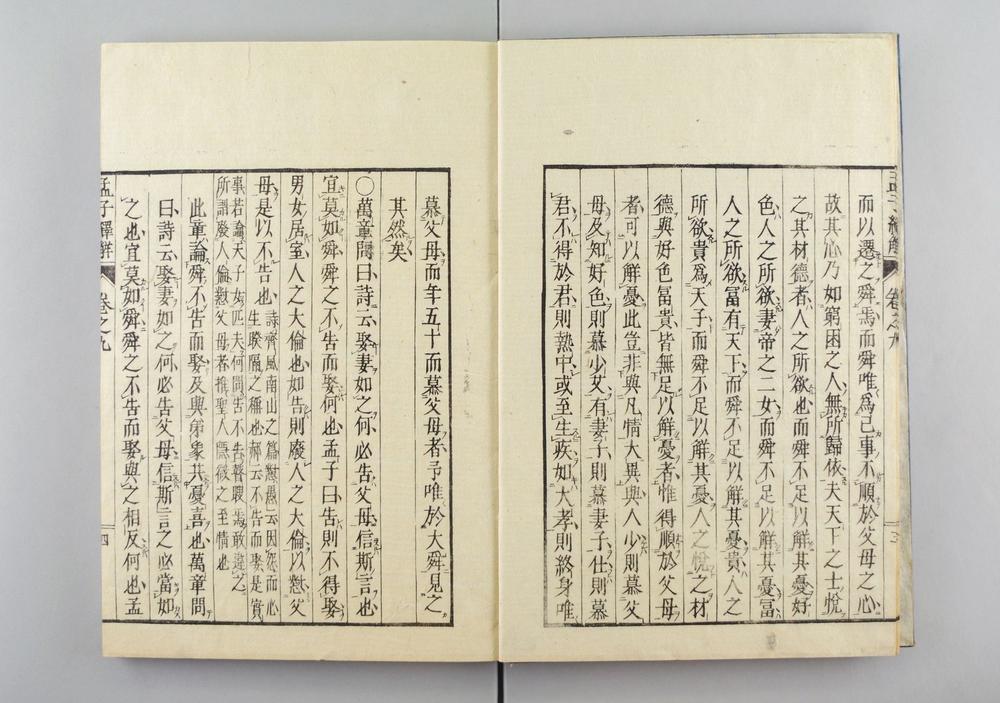 孟子繹解 卷之九 三
而以遷之舜焉而舜唯爲己事不順於父母之心
故其心乃如窮困之人無所歸依夫天下之士悅
之其材德者人之所欲也而舜不足以解其憂好
色人之所欲妻帝之二女而舜不足以解其憂冨
人之所欲冨有天下而舜不足以解其憂貴人之
所欲貴爲天子而舜不足以解其憂人之悅之材
德與好色冨貴皆無足以解憂者惟得順於父母
者可以解憂此豈非與凡情大異與人少則慕父
母及知好色則慕少艾有妻子則慕妻子仕則慕
君不得於君則熱中或至生疾如大孝則終身唯
慕父母而年五十而慕父母者予唯於大舜見之
其然矣
○萬章問曰詩云娶妻如之何必告父母信斯言也
宜莫如舜舜之不告而娶何也孟子曰告則不得娶
男女居室人之大倫也如告則廢人之大倫以懟父
母是以不告也
詩齊風南山之篇懟愚云因怨而心
生暌隔之稱也郝云不告而娶是實
事若論天子女匹夫何問告不告瞽瞍焉敢違之
所謂廢人倫懟父母者推聖人隱微之至情也
此章論舜不告而娶及與弟象共憂喜也萬章問
曰詩云娶妻如之何必告父母信斯言之必當如
之也宜莫如舜舜之不告而娶與之相反何也孟
孟子繹解 卷之九 四